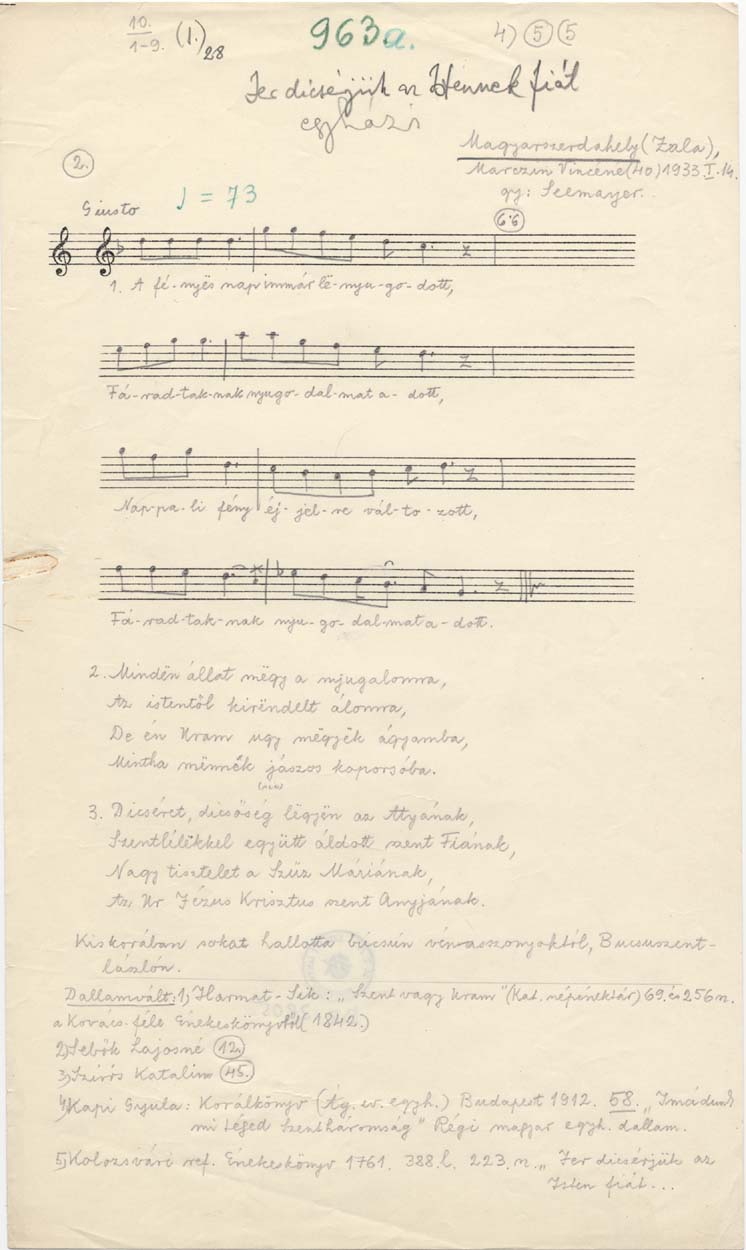 10.
1-9. (1.) 28
963a.
4) 5 (5
Jer dicsérjük az Istennek fiát
egyházi
Magyarszerdahely (Zala),
Marczin Vincéné (40) 1933. I. 14.
gy: Seemayer.
2.
Giusto ♩ = 73
6·6
1. A fé-nyës nap immár lë-nyu-go-dott,
Fá-rad-tak-nak nyugo-dal-mat a-dott,
Nap-pa-li fény éj-jel-re vál-to-zott,
Fá-rad-tak-nak nyu-go-dal-mat a-dott.
2. Mindën állat mëgy a nyugalomra,
Az istentől kirëndelt álomra,
De én Uram ugy mëgyëk ágyamba,
Mintha mënnék jászos koporsóba.
3. Dicséret, dicsőség lëgyën az Atyának,
Szentlélëkkel együtt áldott szent Fiának,
Nagy tisztelet a Szűz Máriának,
Az Ur Jézus Krisztus szent Anyjának.
Kiskorában sokat hallotta búcsún vénasszonyoktól, Bucsuszent-
lászlón.
Dallamvált: 1) Harmat-Sík: „Szent vagy Uram" (Kat. népénektár) 69. és 256 n.
a Kovács-féle Énekeskönyvből (1842.)
2) Sebők Lajosné 12.
3) Szirós Katalin 45.
4) Kapi Gyula: Korálkönyv (Ág. ev. egyh.) Budapest 1912. 58. „Imádunk
mi téged Szentháromság" Régi magyar egyh. dallam.
5) Kolozsvári ref. Énekeskönyv 1761. 388. l. 223. n. „Jer dicsérjük az
Isten fiát...